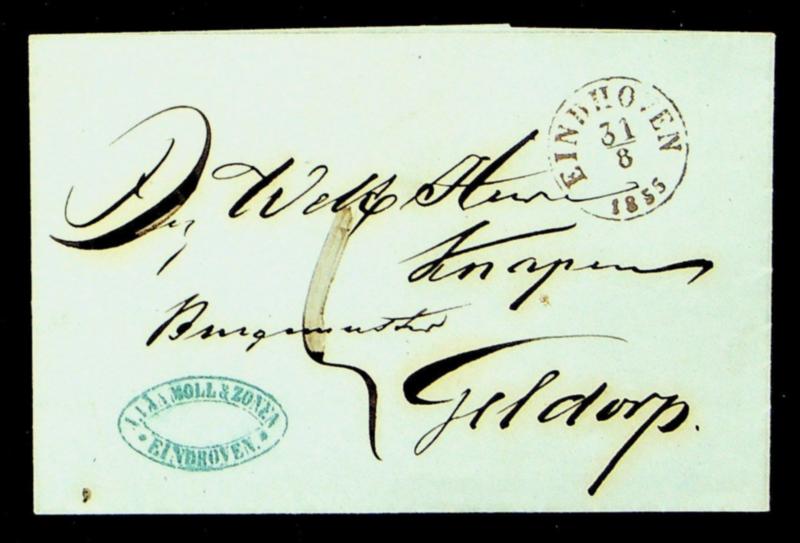 EINDHOVEN
31/8
1855
Den Welk Heere
Knapen
Burgemeester
Geldorp.
MOLL & ZONEN
EINDHOVEN.